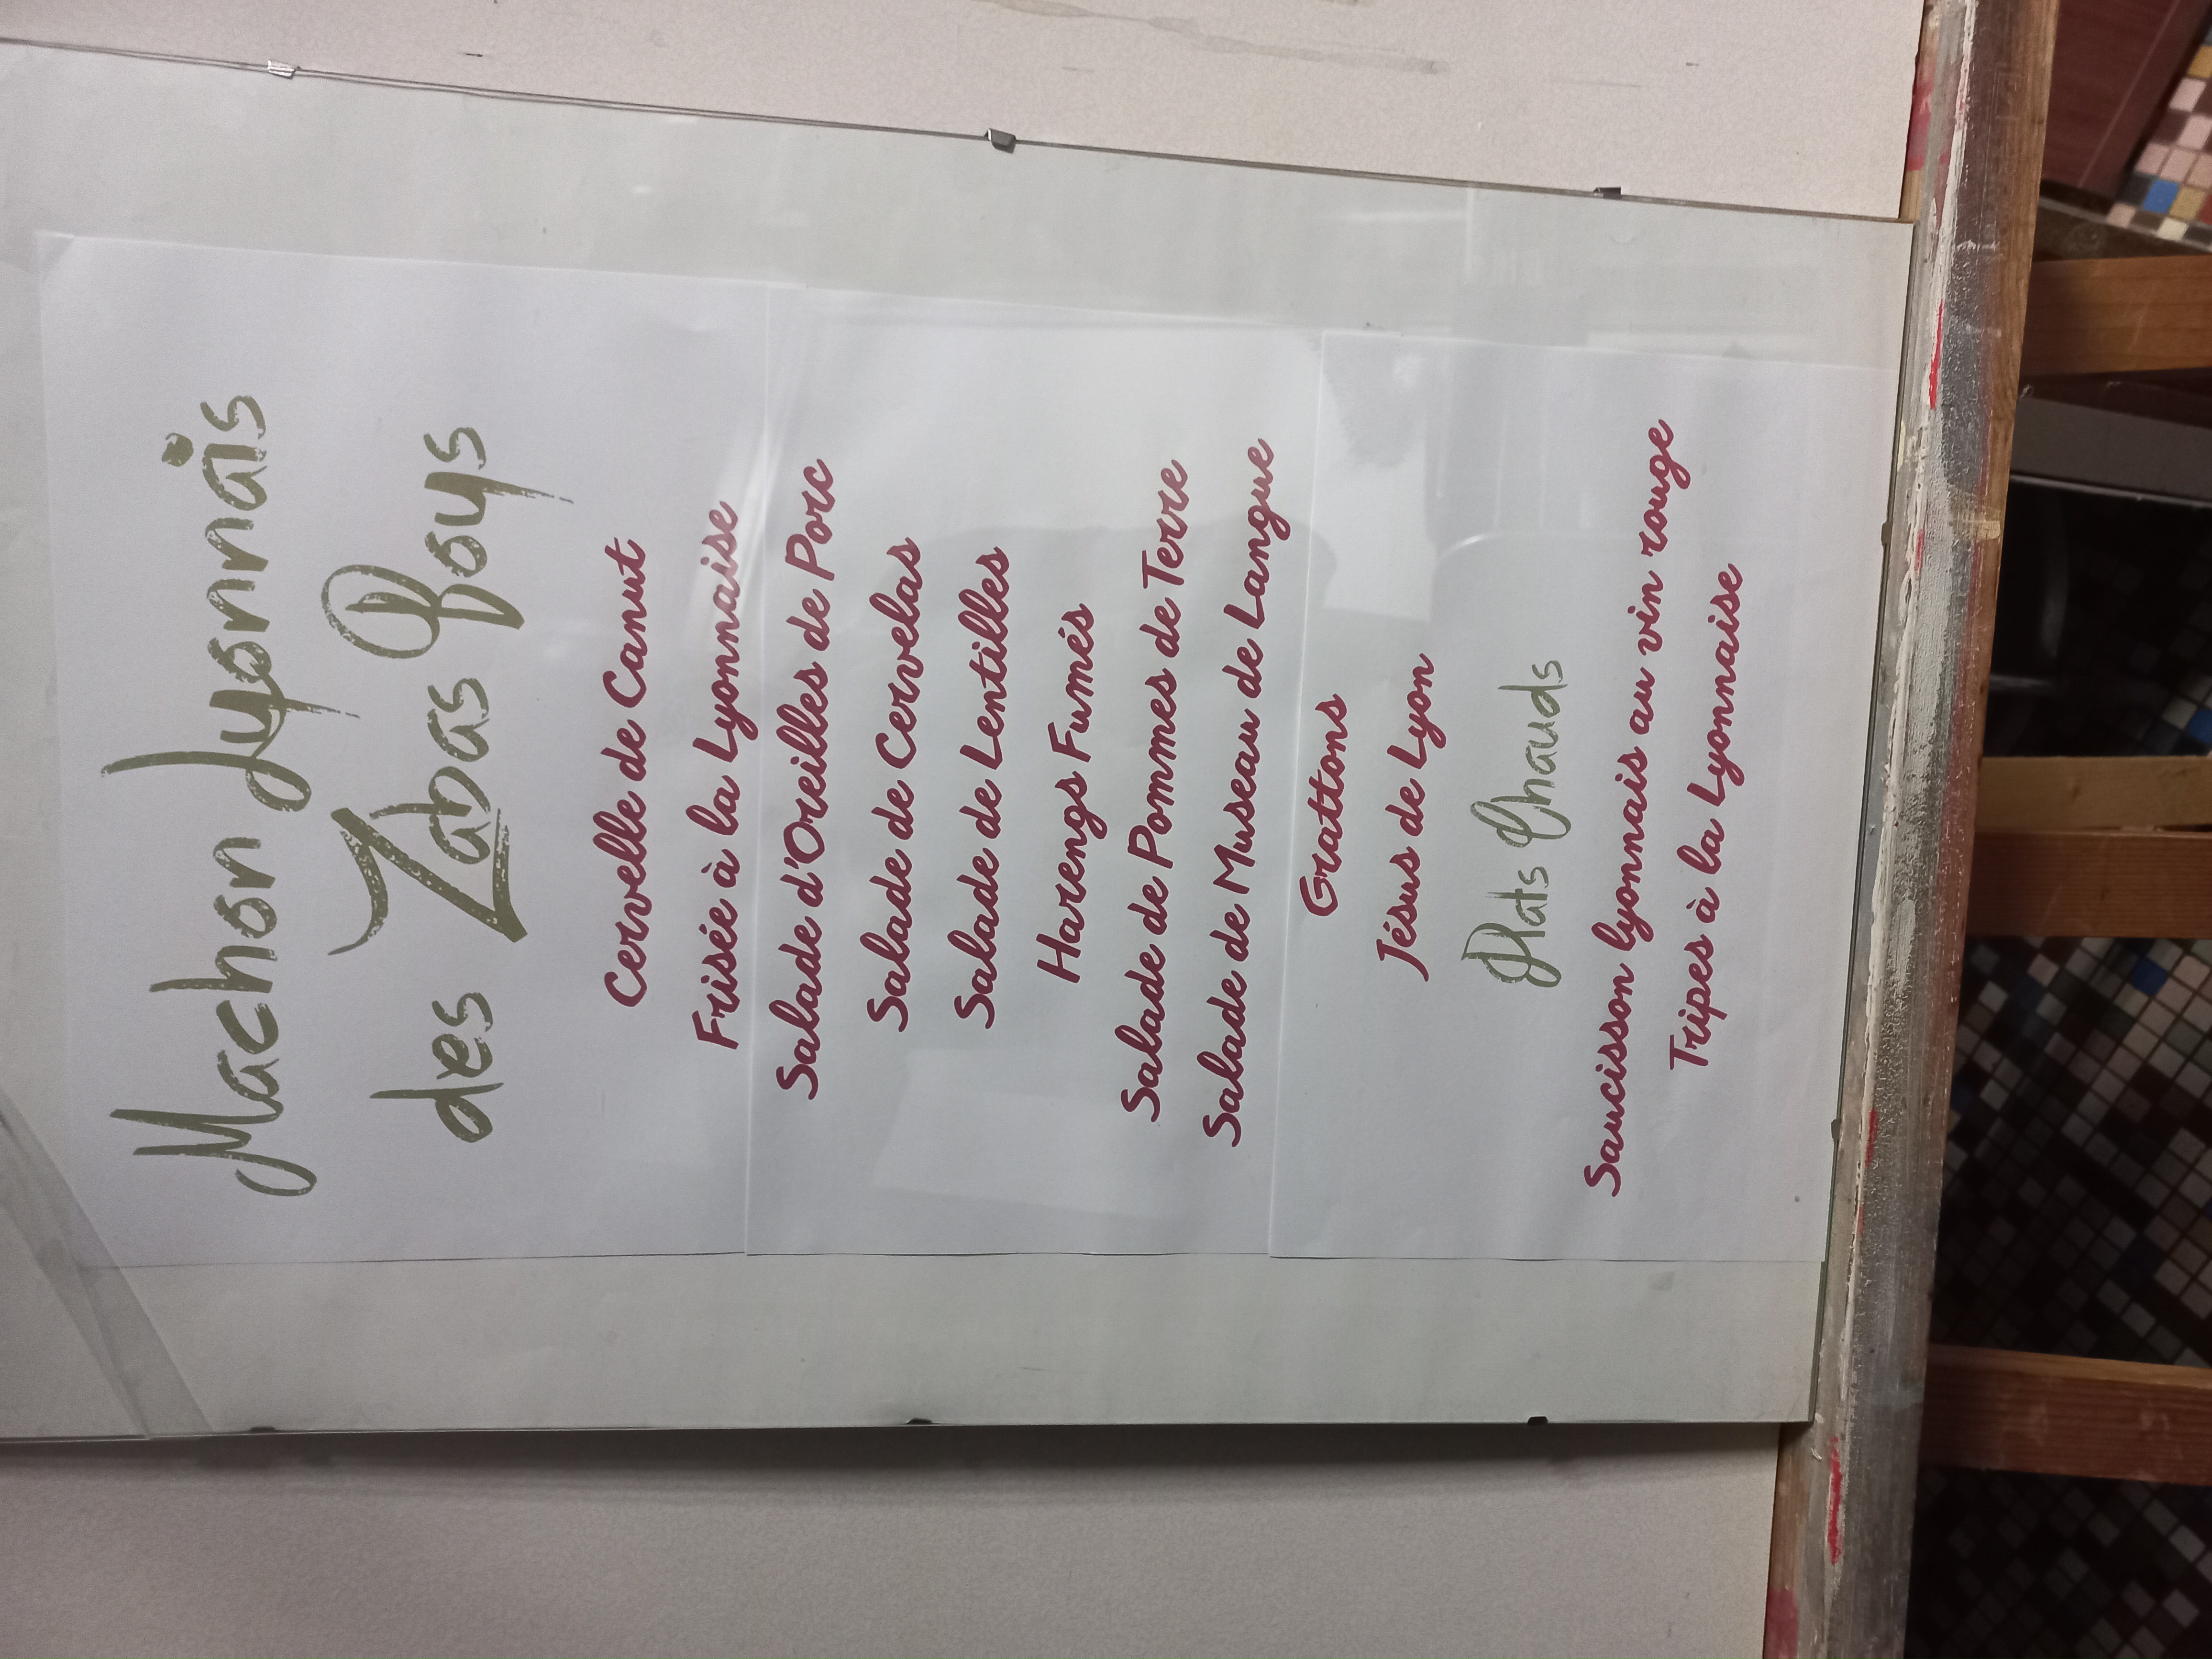 Machon Lyonnais
des Zabas Boys
Cervelle de Canut
Frisée à la Lyonnaise
Salade d'Oreilles de Porc
Salade de Cervelas
Salade de Lentilles
Harengs Fumés
Salade de Pommes de Terre
Salade de Museau de Langue
Grattons
Jésus de Lyon
Plats Chauds
Saucisson lyonnais au vin rouge
Tripes à la Lyonnaise